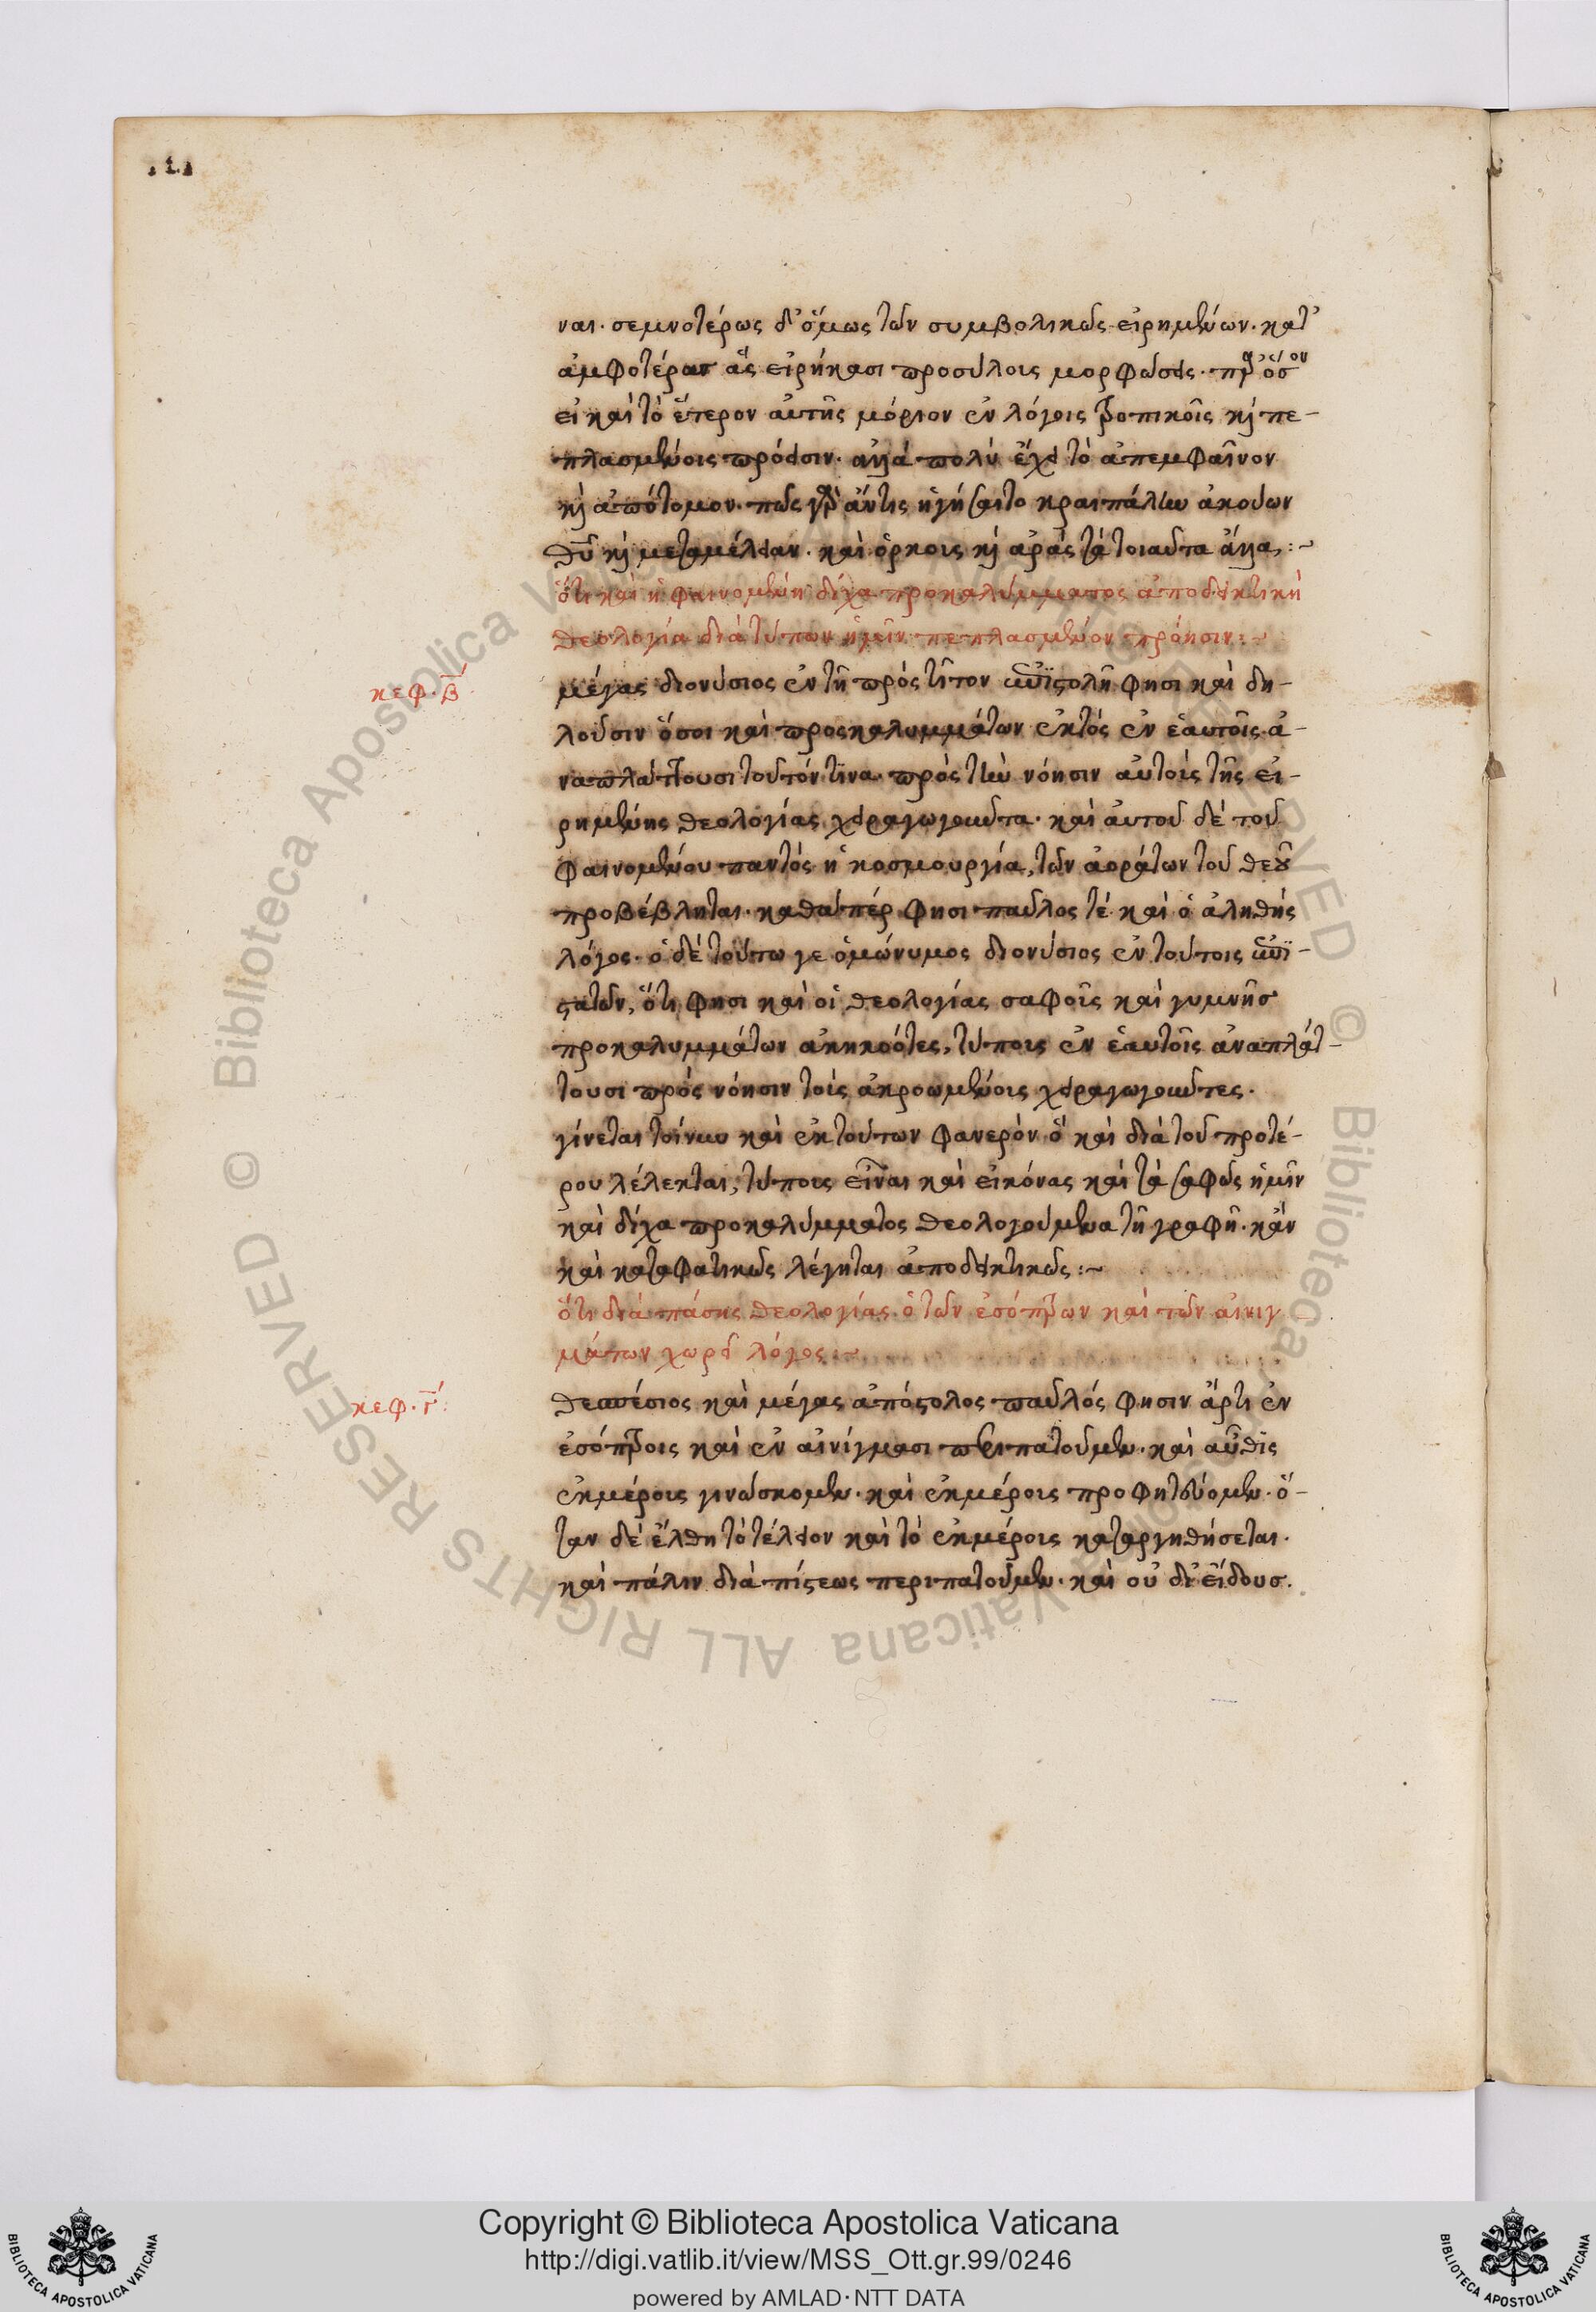 ναι. σεμνοτέρως δ' ὅμως τῶν συμβολικῶς εἰρημένων. κατ'
ἀμφοτέρας ἃς εἰρήκασι προσύλοις μορφώσεις.
εἰ καὶ τὸ ἕτερον αὐτῆς μόριον ἐν λόγοις τροπικοῖς καὶ πε-
πλασμένοις πρόεισιν. ἀλλὰ πολὺ ἔχει τὸ ἀπεμφαῖνον
καὶ ἀπότομον. πῶς γὰρ ἄν τις ἡγήσαιτο κραιπάλην ἀκούων
θεοῦ καὶ μεταμέλειαν. καὶ ὅρκοις καὶ ἀρὰς τὰ τοιαῦτα ἄλλα :~
ὅτι καὶ ἡ φαινομένη δίχα προκαλύμματος ἀποδεικτικὴ
θεολογία διὰ τύπων ἡμῖν πεπλασμένον πρόησιν :~
κεφ. β
μέγας διονύσιος ἐν τῇ πρὸς τίτον ἐπιστολῇ φησι καὶ δη-
λοῦσιν ὅσοι καὶ προςκαλυμμάτων ἐκτὸς ἐν ἑαυτοῖς ἀ-
ναπλάττουσι τοῦτόν τινα πρὸς τὴν νόησιν αὐτοὺς τῆς εἰ-
ρημένης θεολογίας χειραγωγοῦντα. καὶ αὐτοῦ δὲ τοῦ
φαινομένου παντὸς ἡ κοσμουργία, τῶν ἀοράτων τοῦ θεοῦ
προβέβληται. καθάπέρ φησι παῦλος τὲ καὶ ὁ ἀληθὴς
λόγος. ὁ δὲ τούτω γε ὁμώνυμος διονύσιος ἐν τούτοις ἐπι-
στατῶν, ὅτι φησι καὶ οἱ θεολογίας σαφοῖς καὶ γυμνῆς
προκαλυμμάτων ἀκηκοότες, τύποις ἐν ἑαυτοῖς ἀναπλάτ-
τουσι πρὸς νόησιν τοὺς ἀκροωμένοις χειραγωγοῦντες.
γίνεται τοίνυν καὶ ἐκ τούτων φανερὸν ὃ καὶ διὰ τοῦ προτέ-
ρου λέλεκται, τύποις εἶναι καὶ εἰκόνας καὶ τὰ σαφῶς ἡμῖν
καὶ δίχα προκαλύμματος θεολογούμενα τῇ γραφῇ. κἂν
καὶ καταφατικῶς λέγηται ἀποδεικτικῶς :~
ὅτι διὰ πάσης θεολογίας ὁ τῶν ἐσόπτρων καὶ τῶν αἰνιγ
μάτων χωρεῖ λόγος :~
κεφ. γ :
θεσπέσιος καὶ μέγας ἀπόστολος παῦλός φησιν ἄρτι ἐν
ἐσόπτροις καὶ ἐν αἰνίγμασι περιπατοῦμεν. καὶ αὖθις
ἐκμέροις γινώσκομεν. καὶ ἐκμέροις προφητεύομεν. ὅ-
ταν δὲ ἔλθη τὸ τέλειον καὶ τὸ ἐκμέροις καταργηθήσεται.
καὶ πάλιν διὰ πίστεως περιπατοῦμεν. καὶ οὐ δι' εἴδους.
Copyright © Biblioteca Apostolica Vaticana
http://digi.vatlib.it/view/MSS_Ott.gr.99/0246
powered by AMLAD·NTT DATA
BIBLIOTECA APOSTOLICA VATICANA
BIBLIOTECA APOSTOLICA VATICANA
© Biblioteca Apostolica Vaticana ALL RIGHTS RESERVED
© Biblioteca Apostolica Vaticana ALL RIGHTS RESERVED